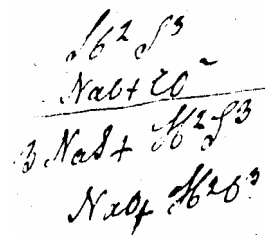 Sb² S³
NaO + CO²
3 NaS + Sb² S³
NaO + Sb² O³